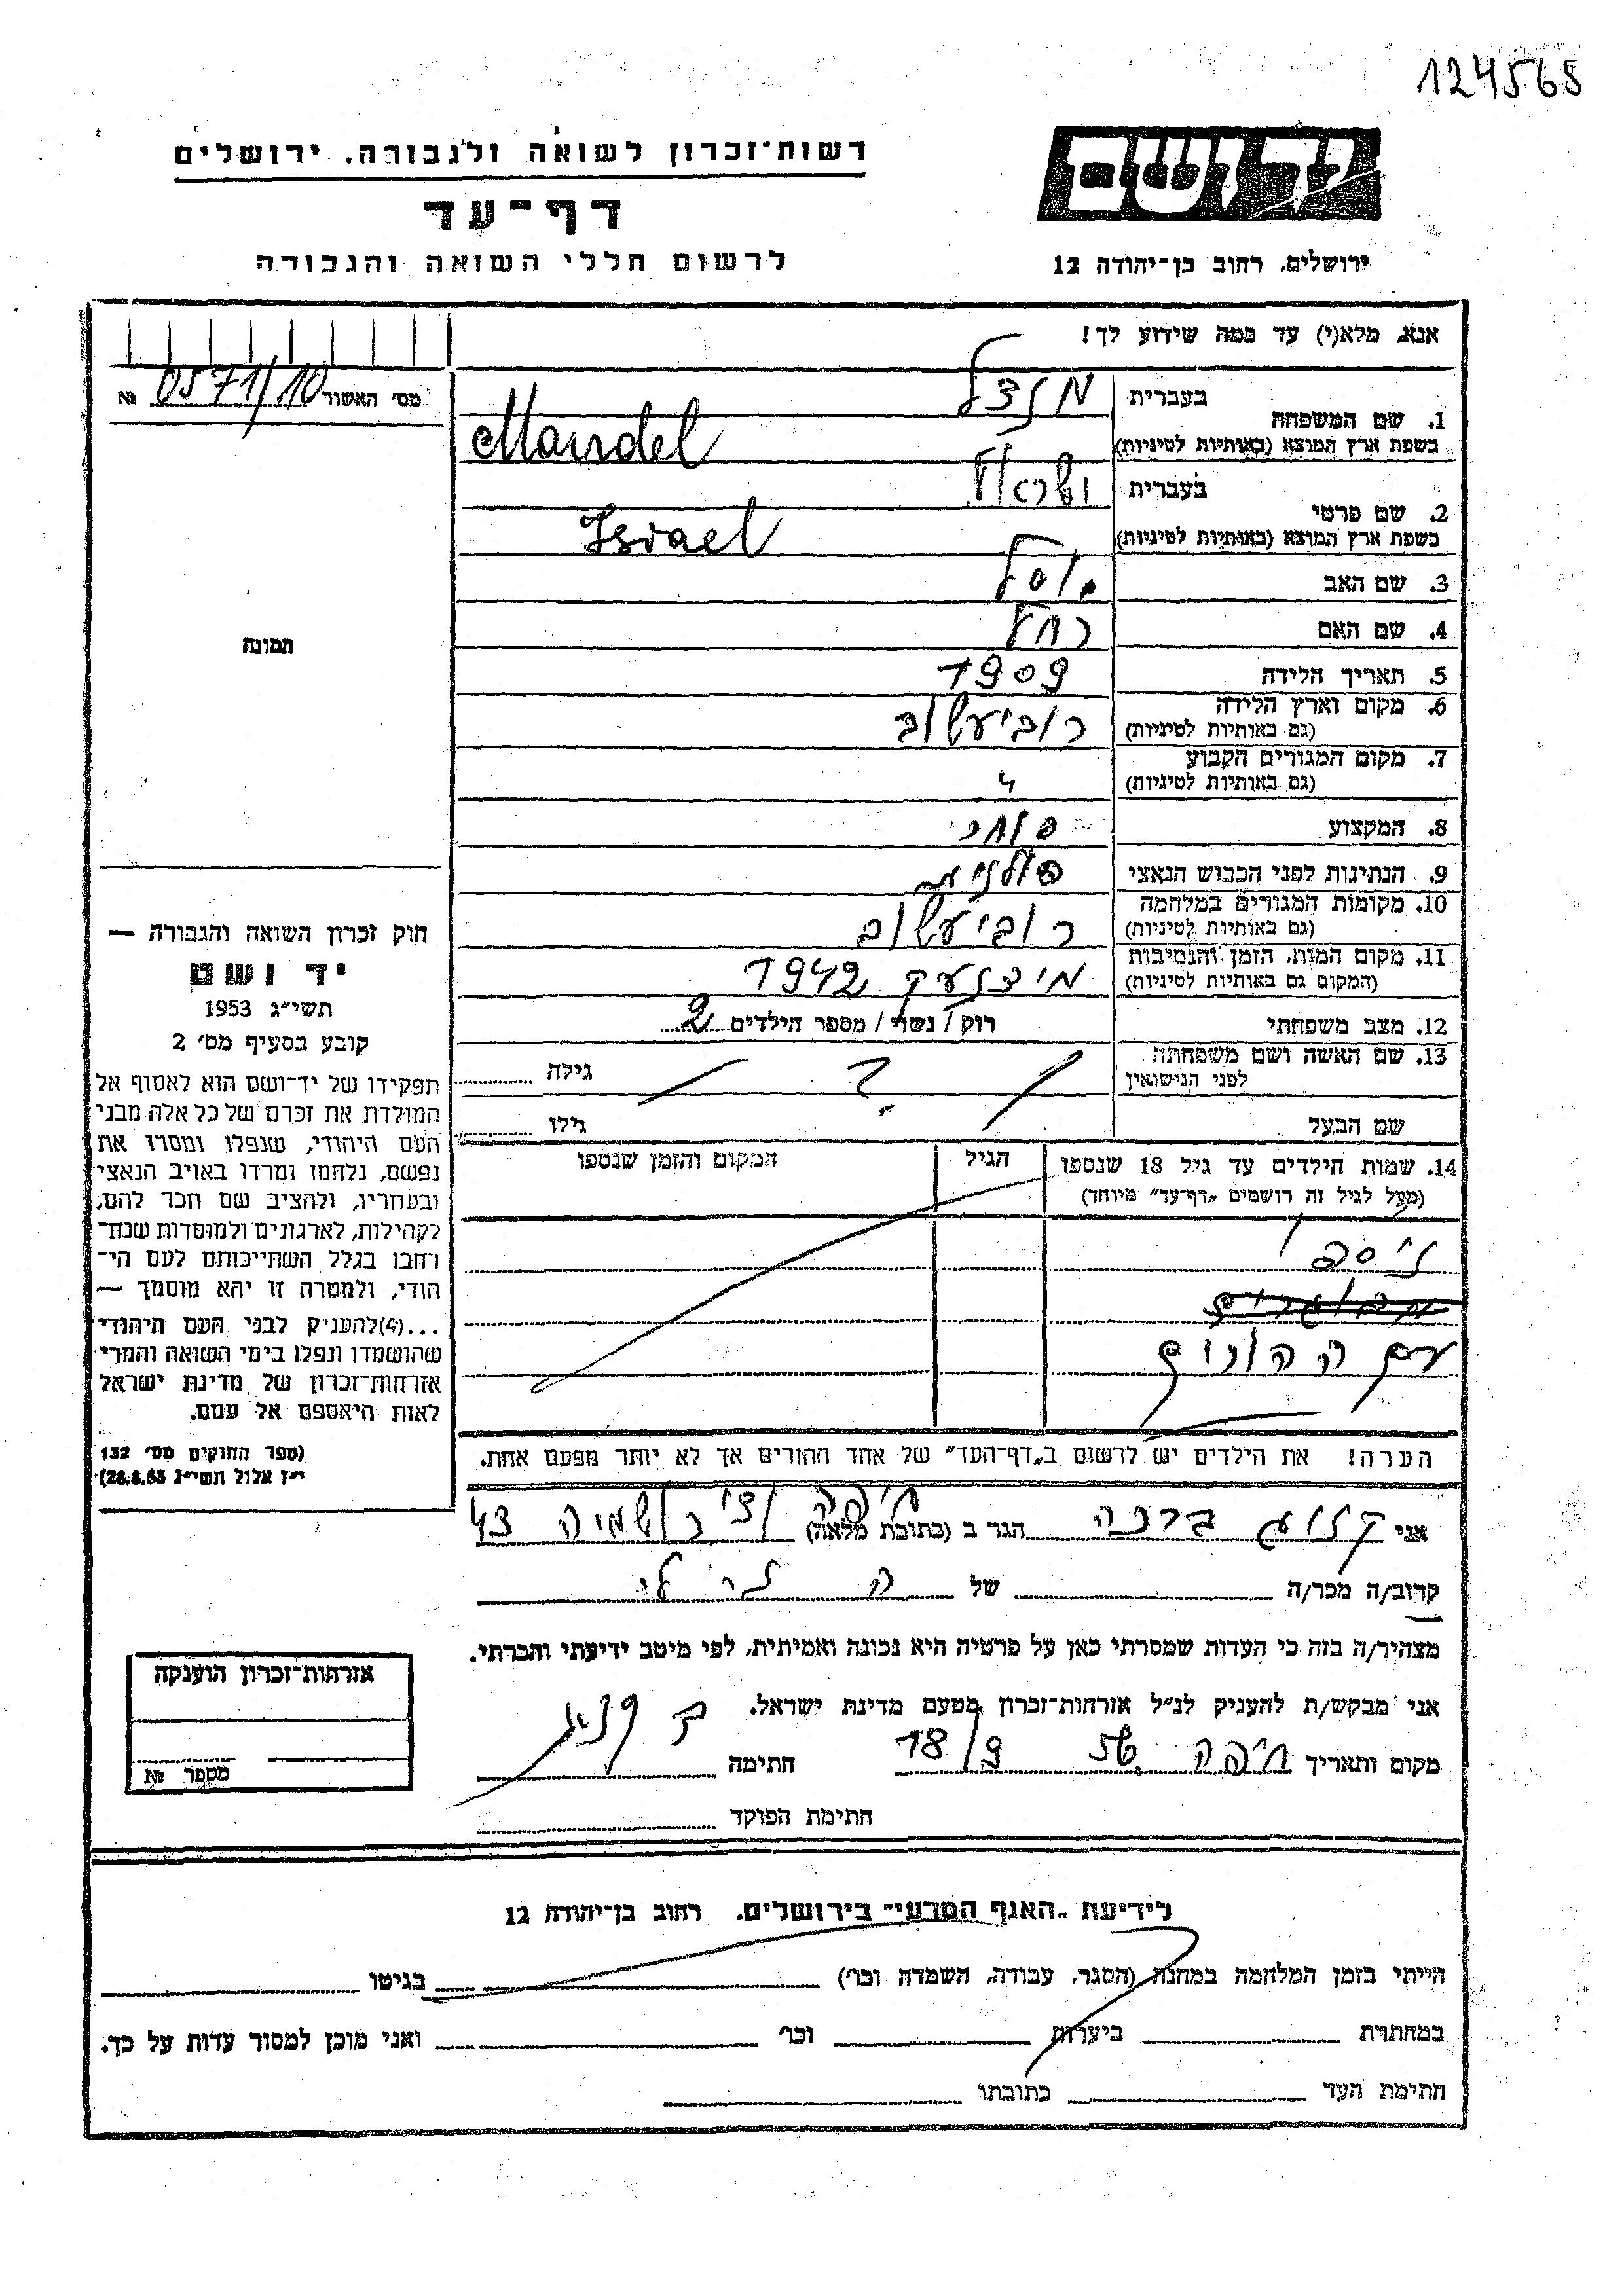 124565
רשות־זכרון לשואה ולגבורה, ירושלים
דף־עד
לרשום חללי השואה והגבורה
ירושלים, רחוב בן־יהודה 12
אנא, מלא(י) עד כמה שידוע לך!
מס׳ האשור 0571/10 №
1. שם המשפחה בעברית מנדל
בשפת ארץ המוצא (באותיות לטיניות) Mandel
2. שם פרטי בעברית ישראל
בשפת ארץ המוצא (באותיות לטיניות) Israel
3. שם האב
4. שם האם רחל
5. תאריך הלידה 1909
6. מקום וארץ הלידה רוביעשוב
(גם באותיות לטיניות)
7. מקום המגורים הקבוע
(גם באותיות לטיניות) "
8. המקצוע סוחר
9. הנתינות לפני הכבוש הנאצי
10. מקומות המגורים במלחמה רוביעשוב
(גם באותיות לטיניות)
11. מקום המות, הזמן והנסיבות 1942
(המקום גם באותיות לטיניות)
12. מצב משפחתי רוק / נשוי / מספר הילדים 2
13. שם האשה ושם משפחתה ? גילה
לפני הנישואין
שם הבעל גילו
14. שמות הילדים עד גיל 18 שנספו הגיל המקום והזמן שנספו
(מעל לגיל זה רושמים „דף־עד״ מיוחד)
ניספו
עם ההורים
הערה! את הילדים יש לרשום ב„דף־העד״ של אחד ההורים אך לא יותר מפעם אחת.
תמונה
חוק זכרון השואה והגבורה —
יד ושם
תשי״ג 1953
קובע בסעיף מס׳ 2
תפקידו של יד־ושם הוא לאסוף אל
המולדת את זכרם של כל אלה מבני
העם היהודי, שנפלו ומסרו את
נפשם, נלחמו ומרדו באויב הנאצי
ובעוזריו, ולהציב שם וזכר להם,
לקהילות, לארגונים ולמוסדות שנח־
רחבו בגלל השתייכותם לעם הי־
הודי, ולמטרה זו יהא מוסמך —
...(4)להעניק לבני העם היהודי
שהושמדו ונפלו בימי השואה והמרי
אזרחות־זכרון של מדינת ישראל
לאות היאספם אל עמם.
(ספר החוקים מס׳ 132
י״ז אלול תשי״ג 28.8.53)
אני ברכה הגר ב (כתובת מלאה) חיפה 43
קרוב/ה מכר/ה של
מצהיר/ה בזה כי העדות שמסרתי כאן על פרטיה היא נכונה ואמיתית, לפי מיטב ידיעתי והכרתי.
אני מבקש/ת להעניק לנ״ל אזרחות־זכרון מטעם מדינת ישראל.
מקום ותאריך חיפה 18/9 56 חתימה
חתימת הפוקד
אזרחות־זכרון הוענקה
מספר №
לידיעת „האגף המדעי״ בירושלים, רחוב בן־יהודה 12
הייתי בזמן המלחמה במחנה (הסגר, עבודה, השמדה וכו׳) בגיטו
במחתרת ביערות וכו׳ ואני מוכן למסור עדות על כך.
חתימת העד כתובתו